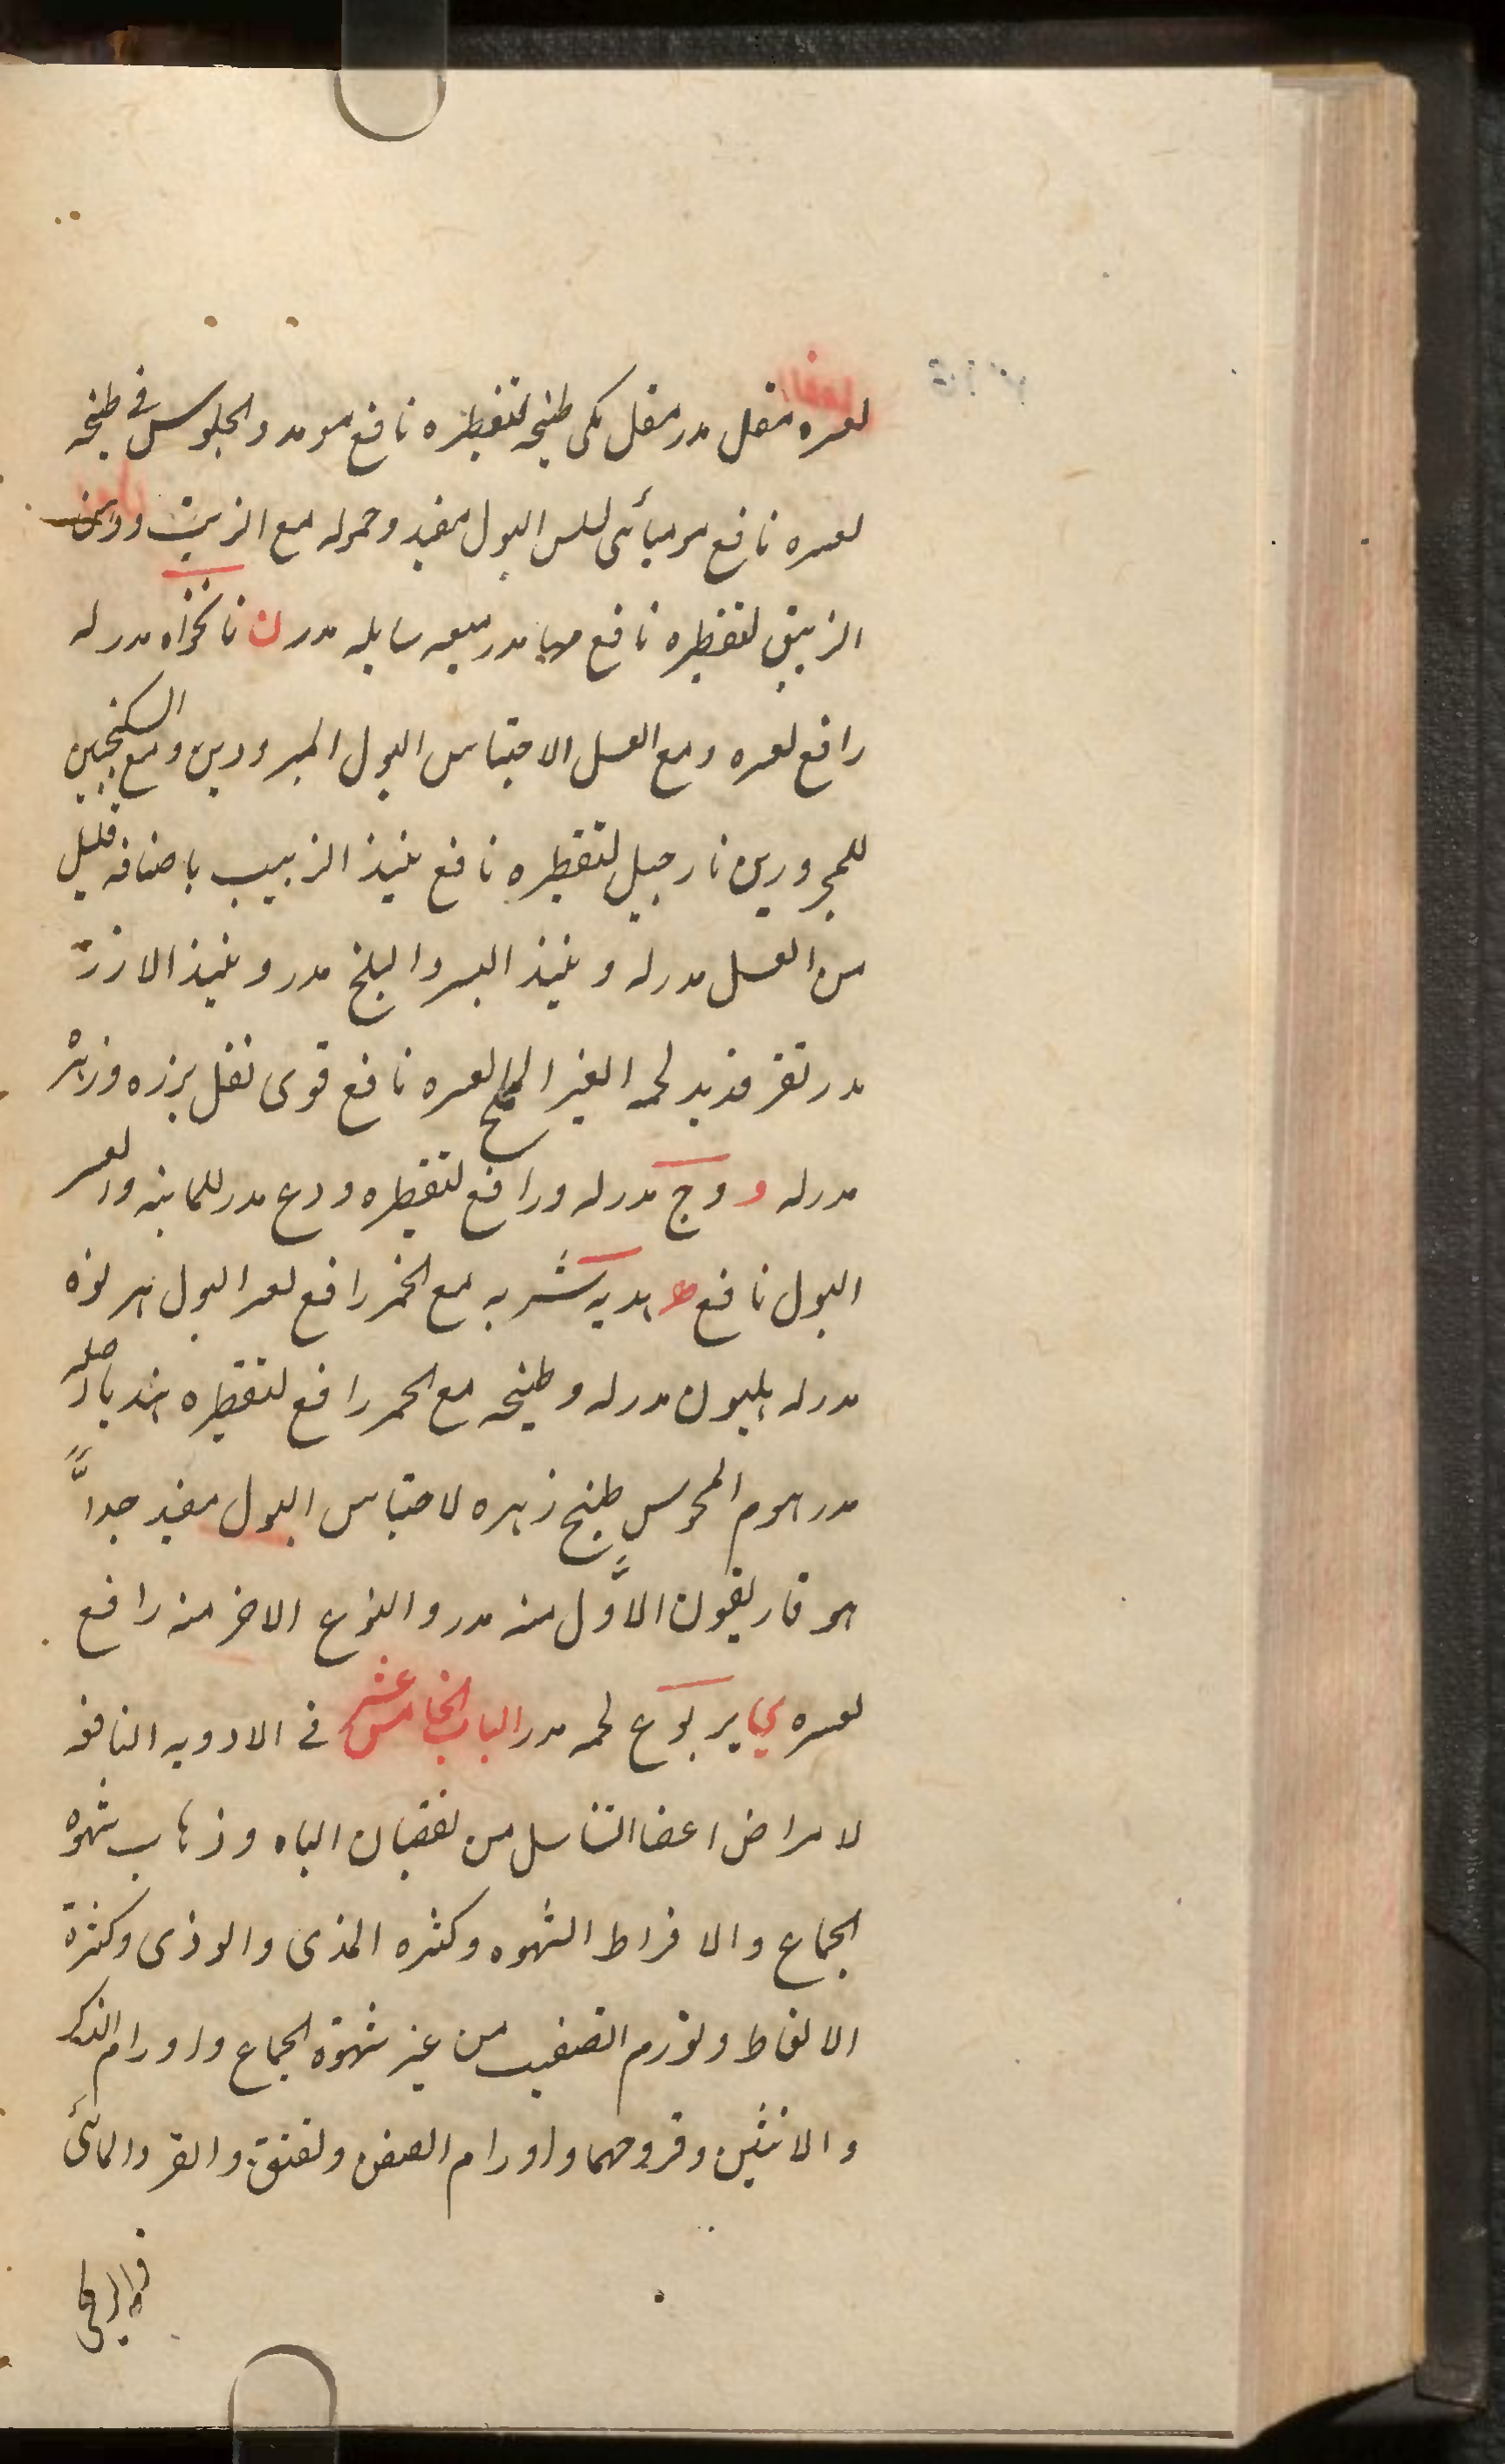 لعسره مقل مدر مقل مکی طبیخه لتقطیره نافع مو مدر والجلوس فی طبیخه
لعسره نافع مومیائی لسلس البول مفید وحموله مع الزیت ودهن
الزیبق لتقطیره نافع میعه سایله مدر ن نانخواه مدر له
رافع لعسره ومع العسل الاحتباس البول المبرودین ومع السکنجبین
للمحرورین نارجیل لتقطیره نافع نبیذ الزبیب باضافه قلیل
من العسل مدر له ونبیذ البسر والبلح مدر ونبیذ الارز
مدر لحمه الغیر المملح لعسره نافع قوی نفل بزره وزهره
مدر له و وج مدر له ورافع لتقطیره ودع مدر للمانیه ولعسر
البول نافع ه هدبه شربه مع الخمر رافع لعسر البول هرنوه
مدر له هلیون مدر له وطبیخه مع الخمر رافع لتقطیره هندبا اصله
مدر هوم المجوس طبیخ زهره لاحتباس البول مفید جداً
هوفاریقون الاول منه مدر والنوع الاخر منه رافع
لعسره ی یربوع لحمه مدر الباب الخامس عشر فی الادویه النافعه
لامراض اعضا التناسل من نقصان الباه وذهاب شهوه
الجماع والافراط الشهوه وکثره المذی والوذی وکثرة
الانعاظ وتورم القضیب من غیر شهوة الجماع واورام الذکر
والانثیین وقروحهما واورام الصفن ولفتق والقر والمائی
والریحی